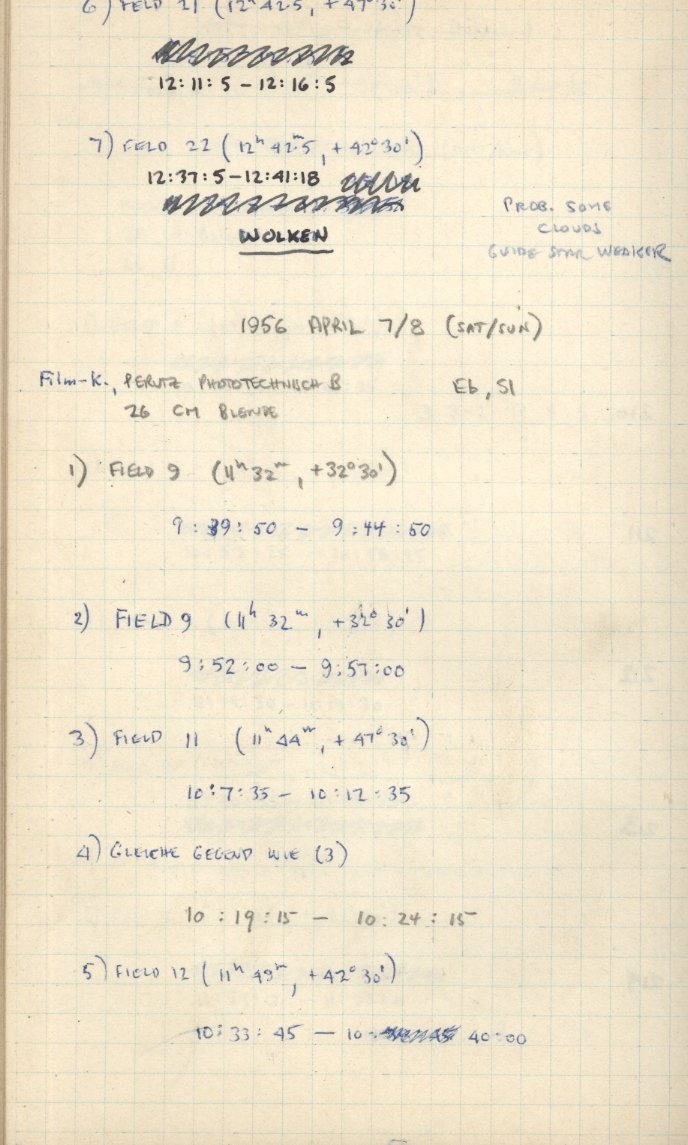 6) FELD 21 (12ʰ 42.5, +47° 30')
12:11:5 – 12:16:5
7) FELD 22 (12ʰ 42ᵐ.5, +42° 30')
12:37:5 – 12:41:18
WOLKEN
PROB. SOME
CLOUDS
GUIDE STAR WEAKER
1956 APRIL 7/8 (SAT/SUN)
Film-K., PERUTZ PHOTOTECHNISCH B Eb, Sl
26 CM BLENDE
1) FIELD 9 (11ʰ 32ᵐ, +32° 30')
9:39:50 – 9:44:50
2) FIELD 9 (11ʰ 32ᵐ, +32° 30')
9:52:00 – 9:57:00
3) FIELD 11 (11ʰ 44ᵐ, +47° 30')
10:7:35 – 10:12:35
4) GLEICHE GEGEND WIE (3)
10:19:15 – 10:24:15
5) FIELD 12 (11ʰ 49ᵐ, +42° 30')
10:33:45 – 10: 40:00